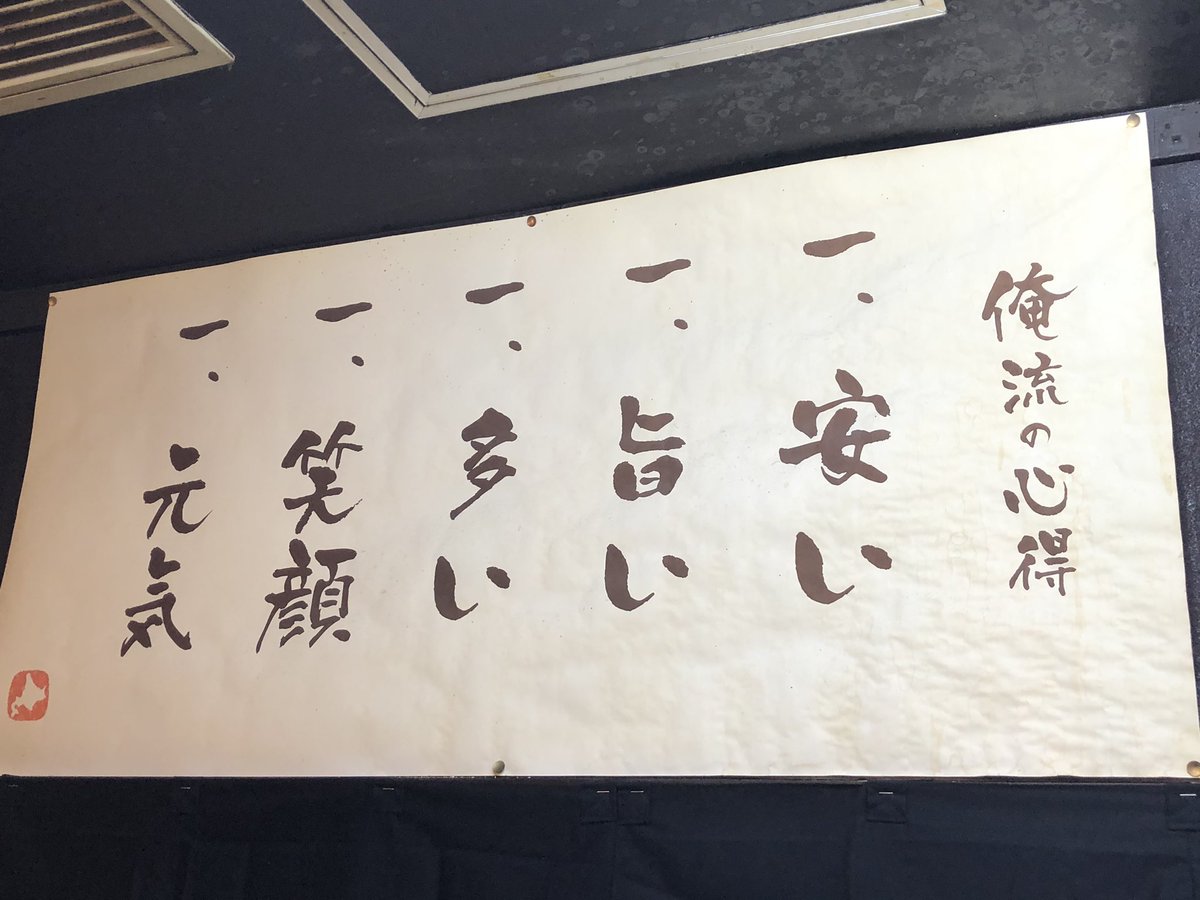 俺流の心得
一、安い
一、旨い
一、多い
一、笑顔
一、元気